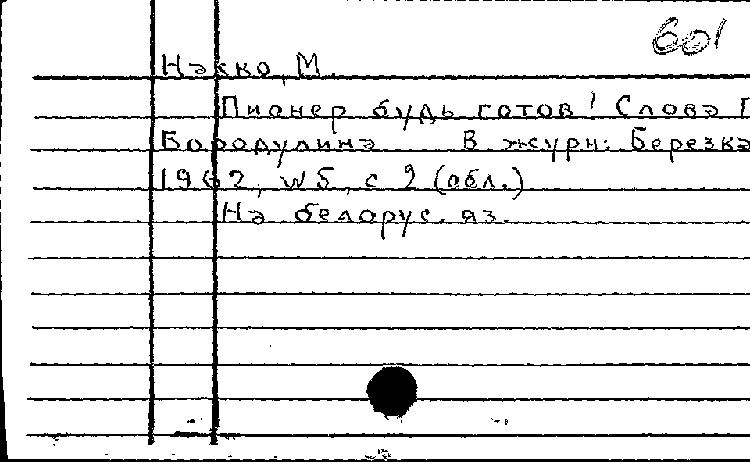 601
Накко, М.
Пионер будь готов! Слова Г
Бородулина В журн: Березка
1962, №5, с 2 (обл.)
На белорус. яз.